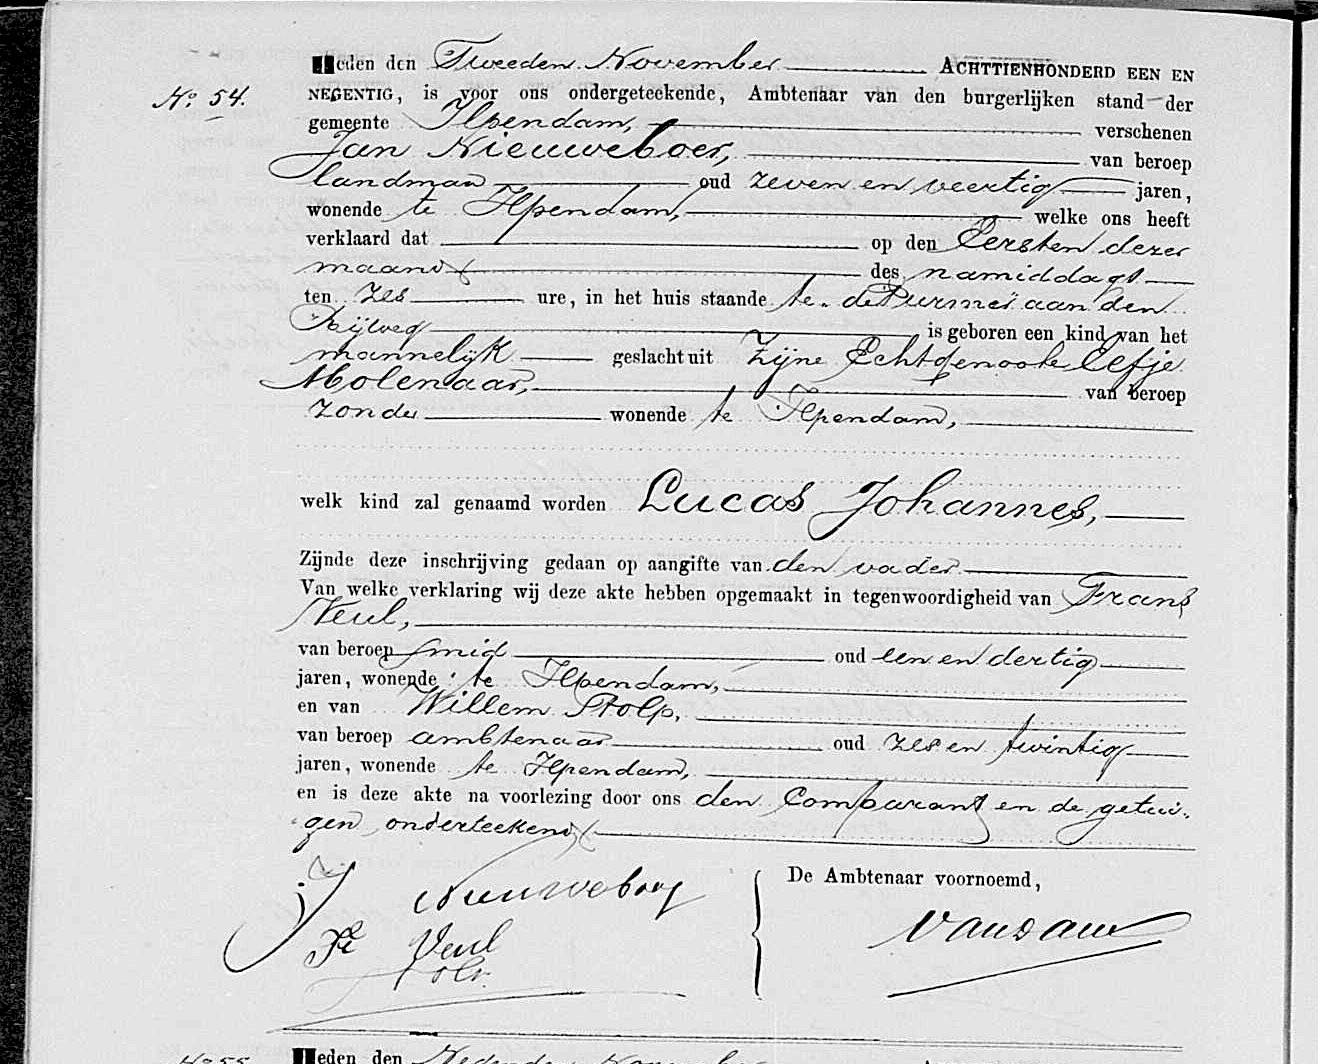 Heden den Tweeden November ACHTTIENHONDERD EEN EN
No 54.
NEGENTIG, is voor ons ondergeteekende, Ambtenaar van den burgerlijken stand der
gemeente Ilpendam, verschenen
Jan Nieuweboer, van beroep
landman oud zeven en veertig jaren,
wonende te Ilpendam, welke ons heeft
verklaard dat op den Eersten dezer
maand des namiddags
ten zes ure, in het huis staande te de Purmer aan den
Rijweg is geboren een kind van het
mannelijk geslacht uit zijne Echtgenoote Eefje
Molenaar, van beroep
zonder wonende te Ilpendam,
welk kind zal genaamd worden Lucas Johannes,
Zijnde deze inschrijving gedaan op aangifte van den vader
Van welke verklaring wij deze akte hebben opgemaakt in tegenwoordigheid van Frans
Veul,
van beroep smid oud een en dertig
jaren, wonende te Ilpendam,
en van Willem Stolp,
van beroep ambtenaar oud zes en twintig
jaren, wonende te Ilpendam,
en is deze akte na voorlezing door ons den Comparant en de getui-
gen onderteekend
J Nieuweboer
De Ambtenaar voornoemd,
Fr Veul
van Dam
No 55
Heden den